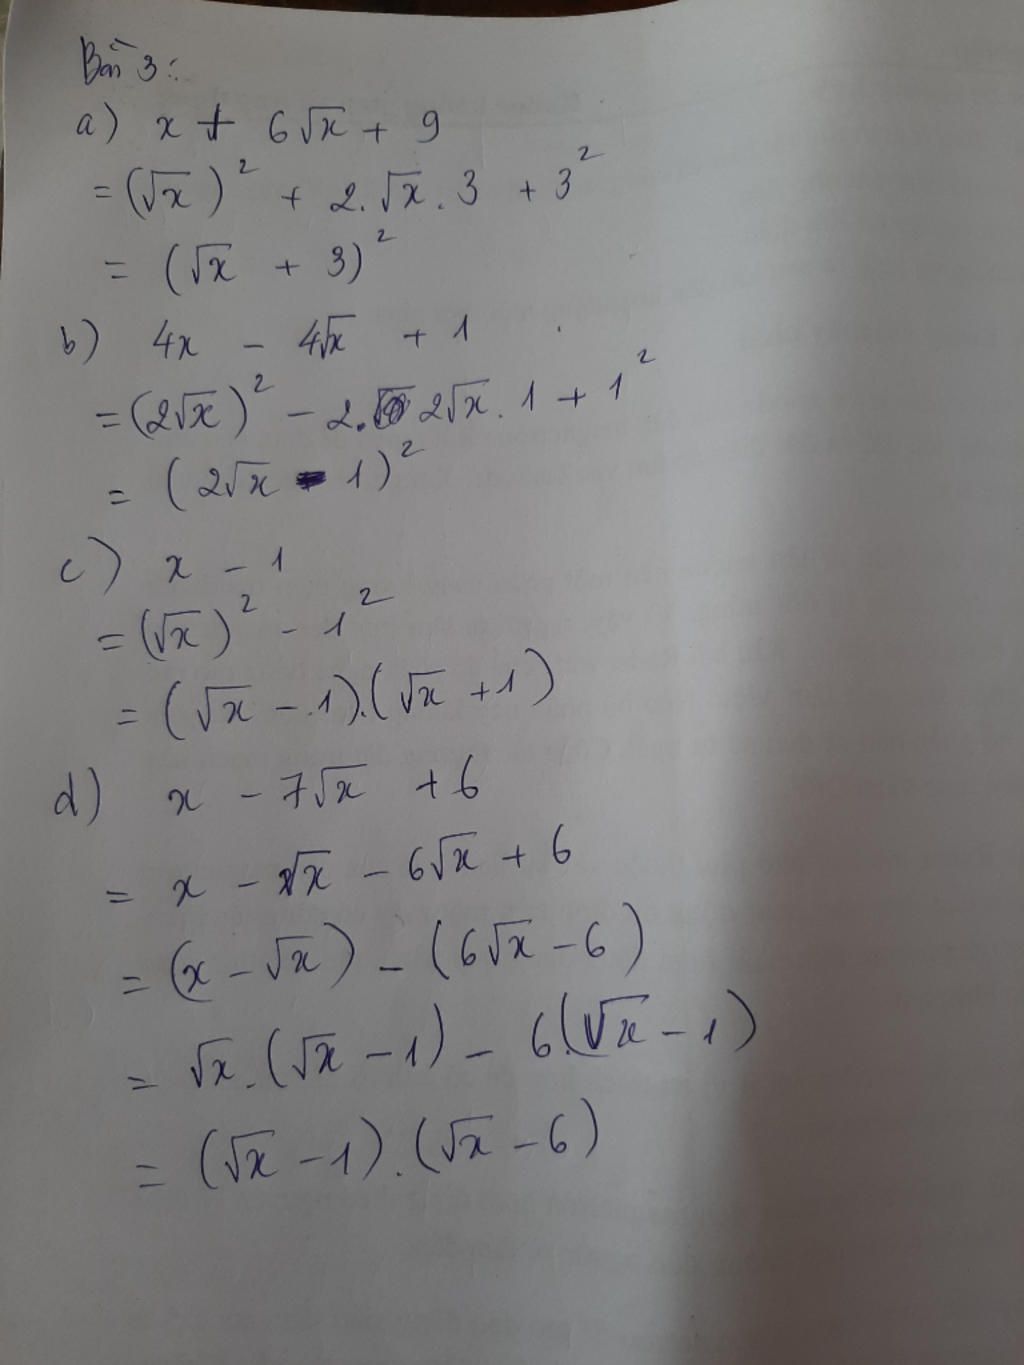 Bài 3:
a) x + 6√x + 9
= (√x)² + 2.√x.3 + 3²
= (√x + 3)²
b) 4x - 4√x + 1
= (2√x)² - 2. 2√x.1 + 1²
= (2√x - 1)²
c) x - 1
= (√x)² - 1²
= (√x - 1).(√x + 1)
d) x - 7√x + 6
= x - √x - 6√x + 6
= (x - √x) - (6√x - 6)
= √x.(√x - 1) - 6.(√x - 1)
= (√x - 1).(√x - 6)